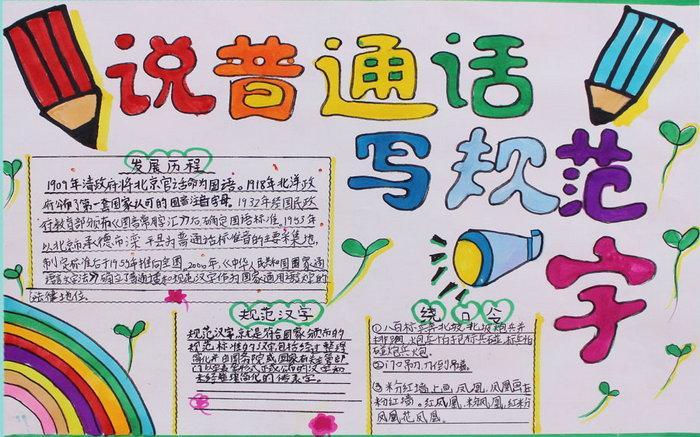 说普通话
写规范字
发展历程
1909年清政府将北京官话命为国语。1918年北洋政
府公布了第一套国家认可的国音注音字母,1932年经国民政
府教育部颁布《国音常用字汇》后,确定国语标准,1953年
以北京市承德市滦平县为普通话标准音的主要采集地,
制定标准后于1955年推向全国,2000年,《中华人民共和国国家通
用语言文字法》确立了普通话和规范汉字作为国家通用语言的
法律地位。
规范汉字
规范汉字,就是符合国家颁布的
规范标准的汉字,包括经过整理
简化并由国务院或国家有关主管部
门以字表形式正式公布的汉字和
未经整理简化的传承字。
绕口令
①八百标兵奔北坡,北坡炮兵并
排跑,炮兵怕把标兵碰,标兵怕
碰炮兵炮。
③粉红墙上画凤凰,凤凰画在
粉红墙。红凤凰、粉凤凰,红粉
凤凰花凤凰。